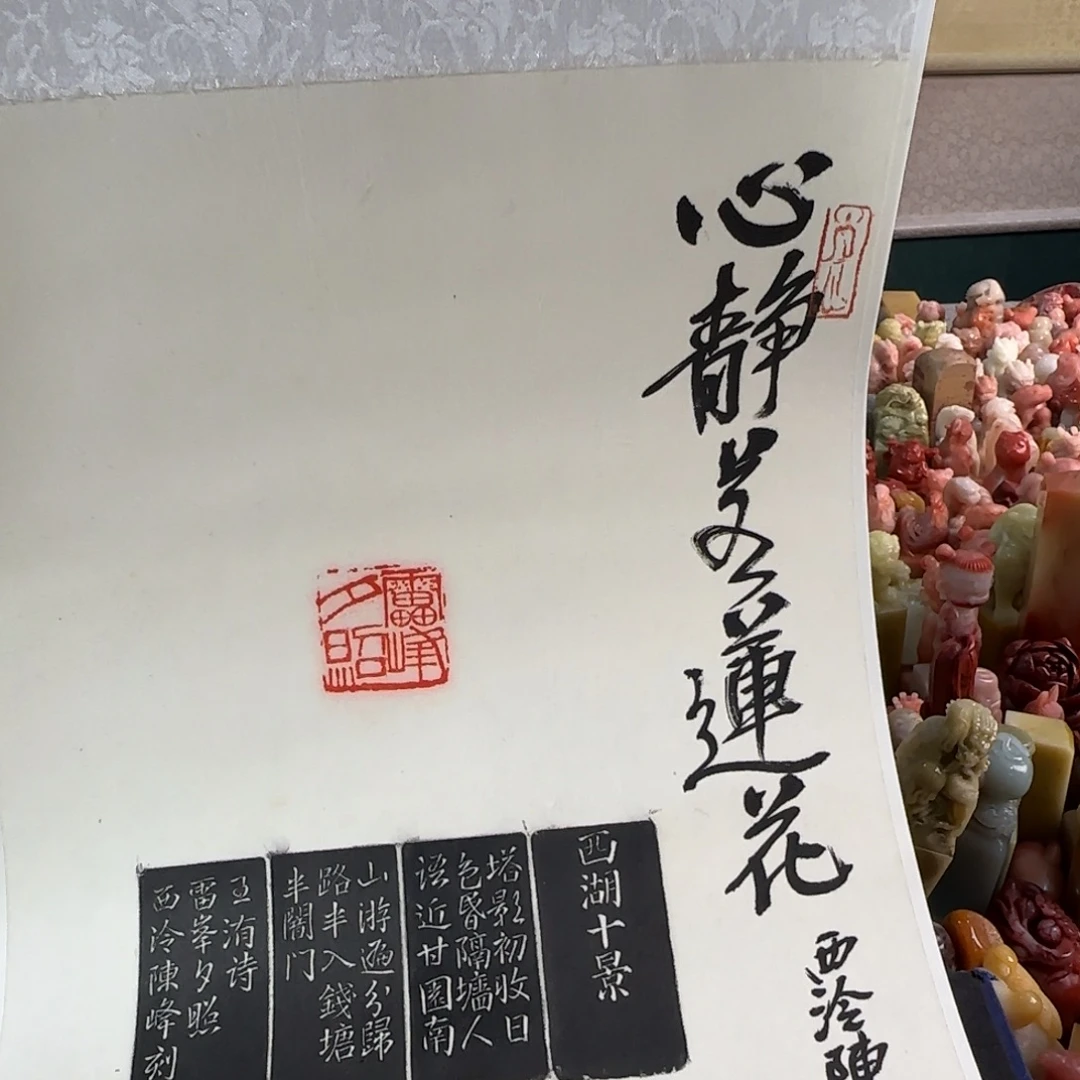 心静蓮花
西泠陳
雷峰
夕照
西湖十景
塔影初收日
色昏隔墻人
语近甘園南
山游遍分歸
路半入錢塘
半闇门
王洧诗
雷峯夕照
西泠陳峰刻